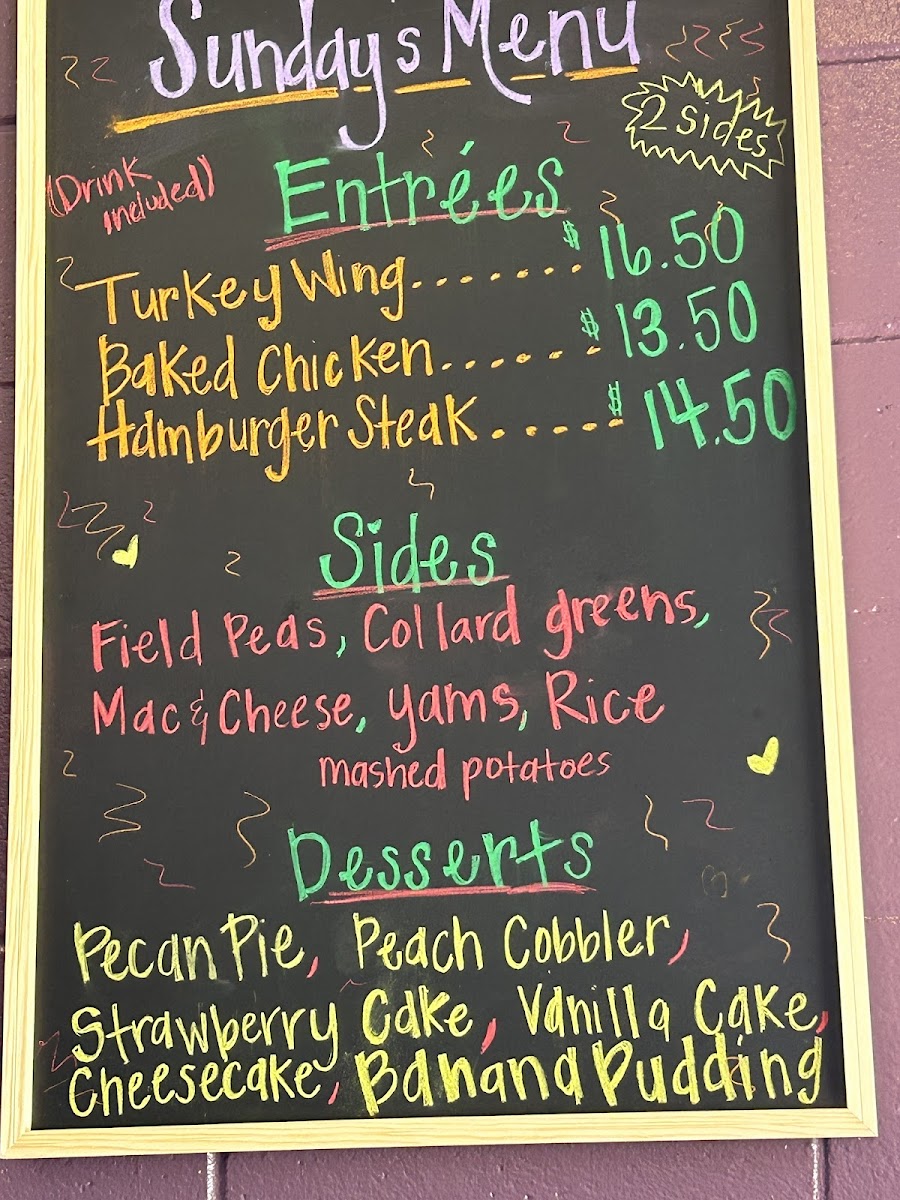 Sunday's Menu
2 sides
(Drink
included)
Entrées
Turkey Wing.......$ 16.50
Baked Chicken......$ 13.50
Hamburger Steak......$ 14.50
Sides
Field Peas, Collard greens,
Mac & Cheese, yams, Rice
mashed potatoes
Desserts
Pecan Pie, Peach Cobbler,
Strawberry Cake, Vanilla Cake,
Cheesecake, Banana Pudding